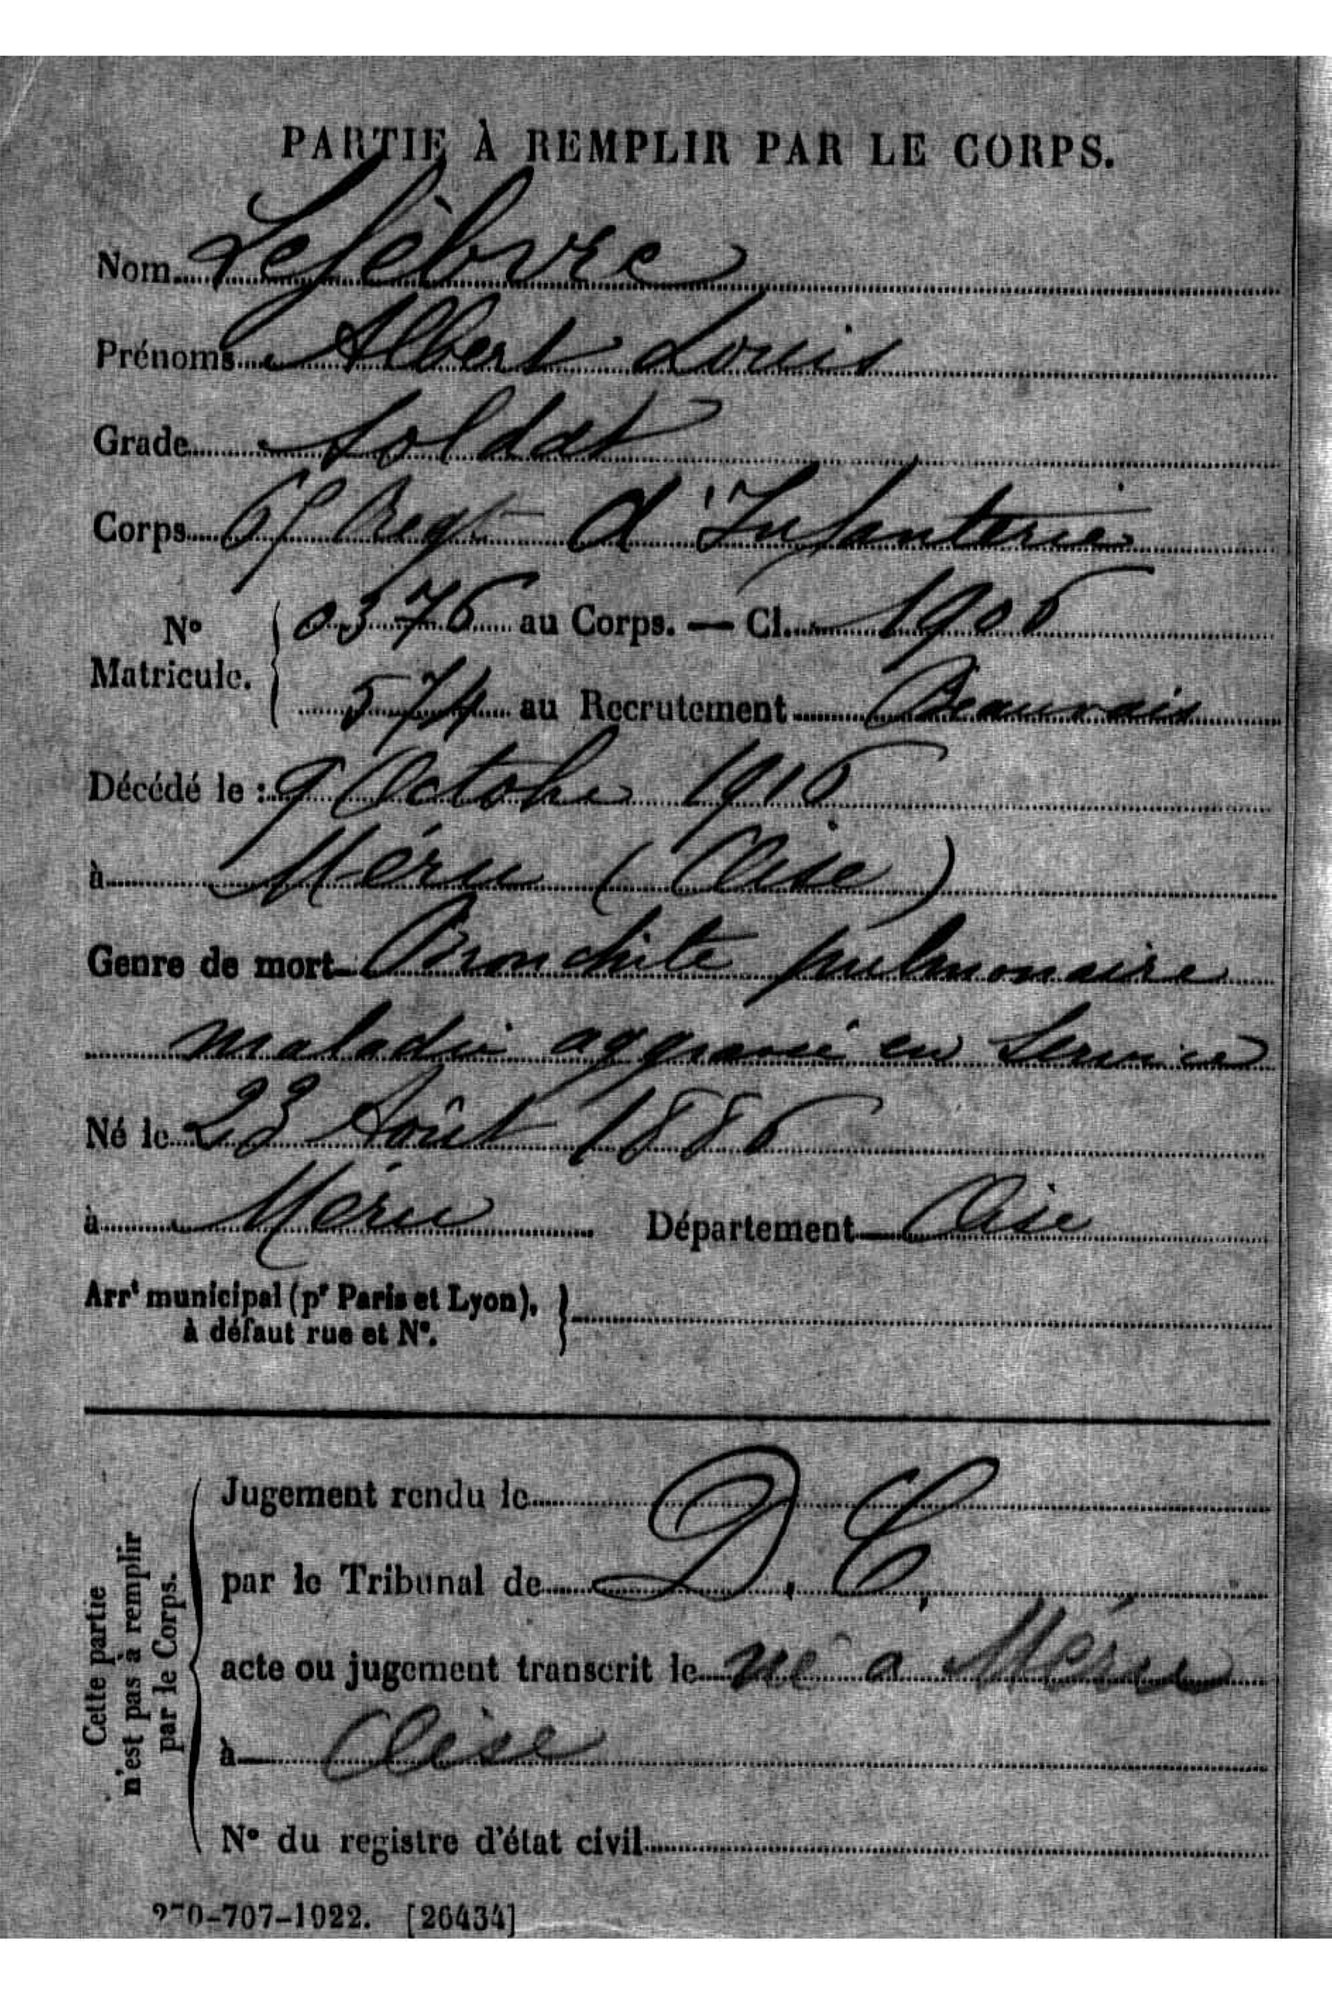 PARTIE À REMPLIR PAR LE CORPS.
Nom Lefèbvre
Prénoms Albert Louis
Grade Soldat
Corps Regt d'Infanterie
N° Matricule. 0376 au Corps. — Cl. 1906
574 au Recrutement Beauvais
Décédé le : 9 Octobre 1916
à Méru (Oise)
Genre de mort Bronchite pulmonaire
maladie aggravé en Service
Né le 23 Août 1886
à Méru Département Oise
Arrt municipal (pr Paris et Lyon),
à défaut rue et N°.
Cette partie
n'est pas à remplir
par le Corps.
Jugement rendu le
par le Tribunal de D. C,
acte ou jugement transcrit le né a Méru
à Oise
N° du registre d'état civil
-707-1922. [26434]